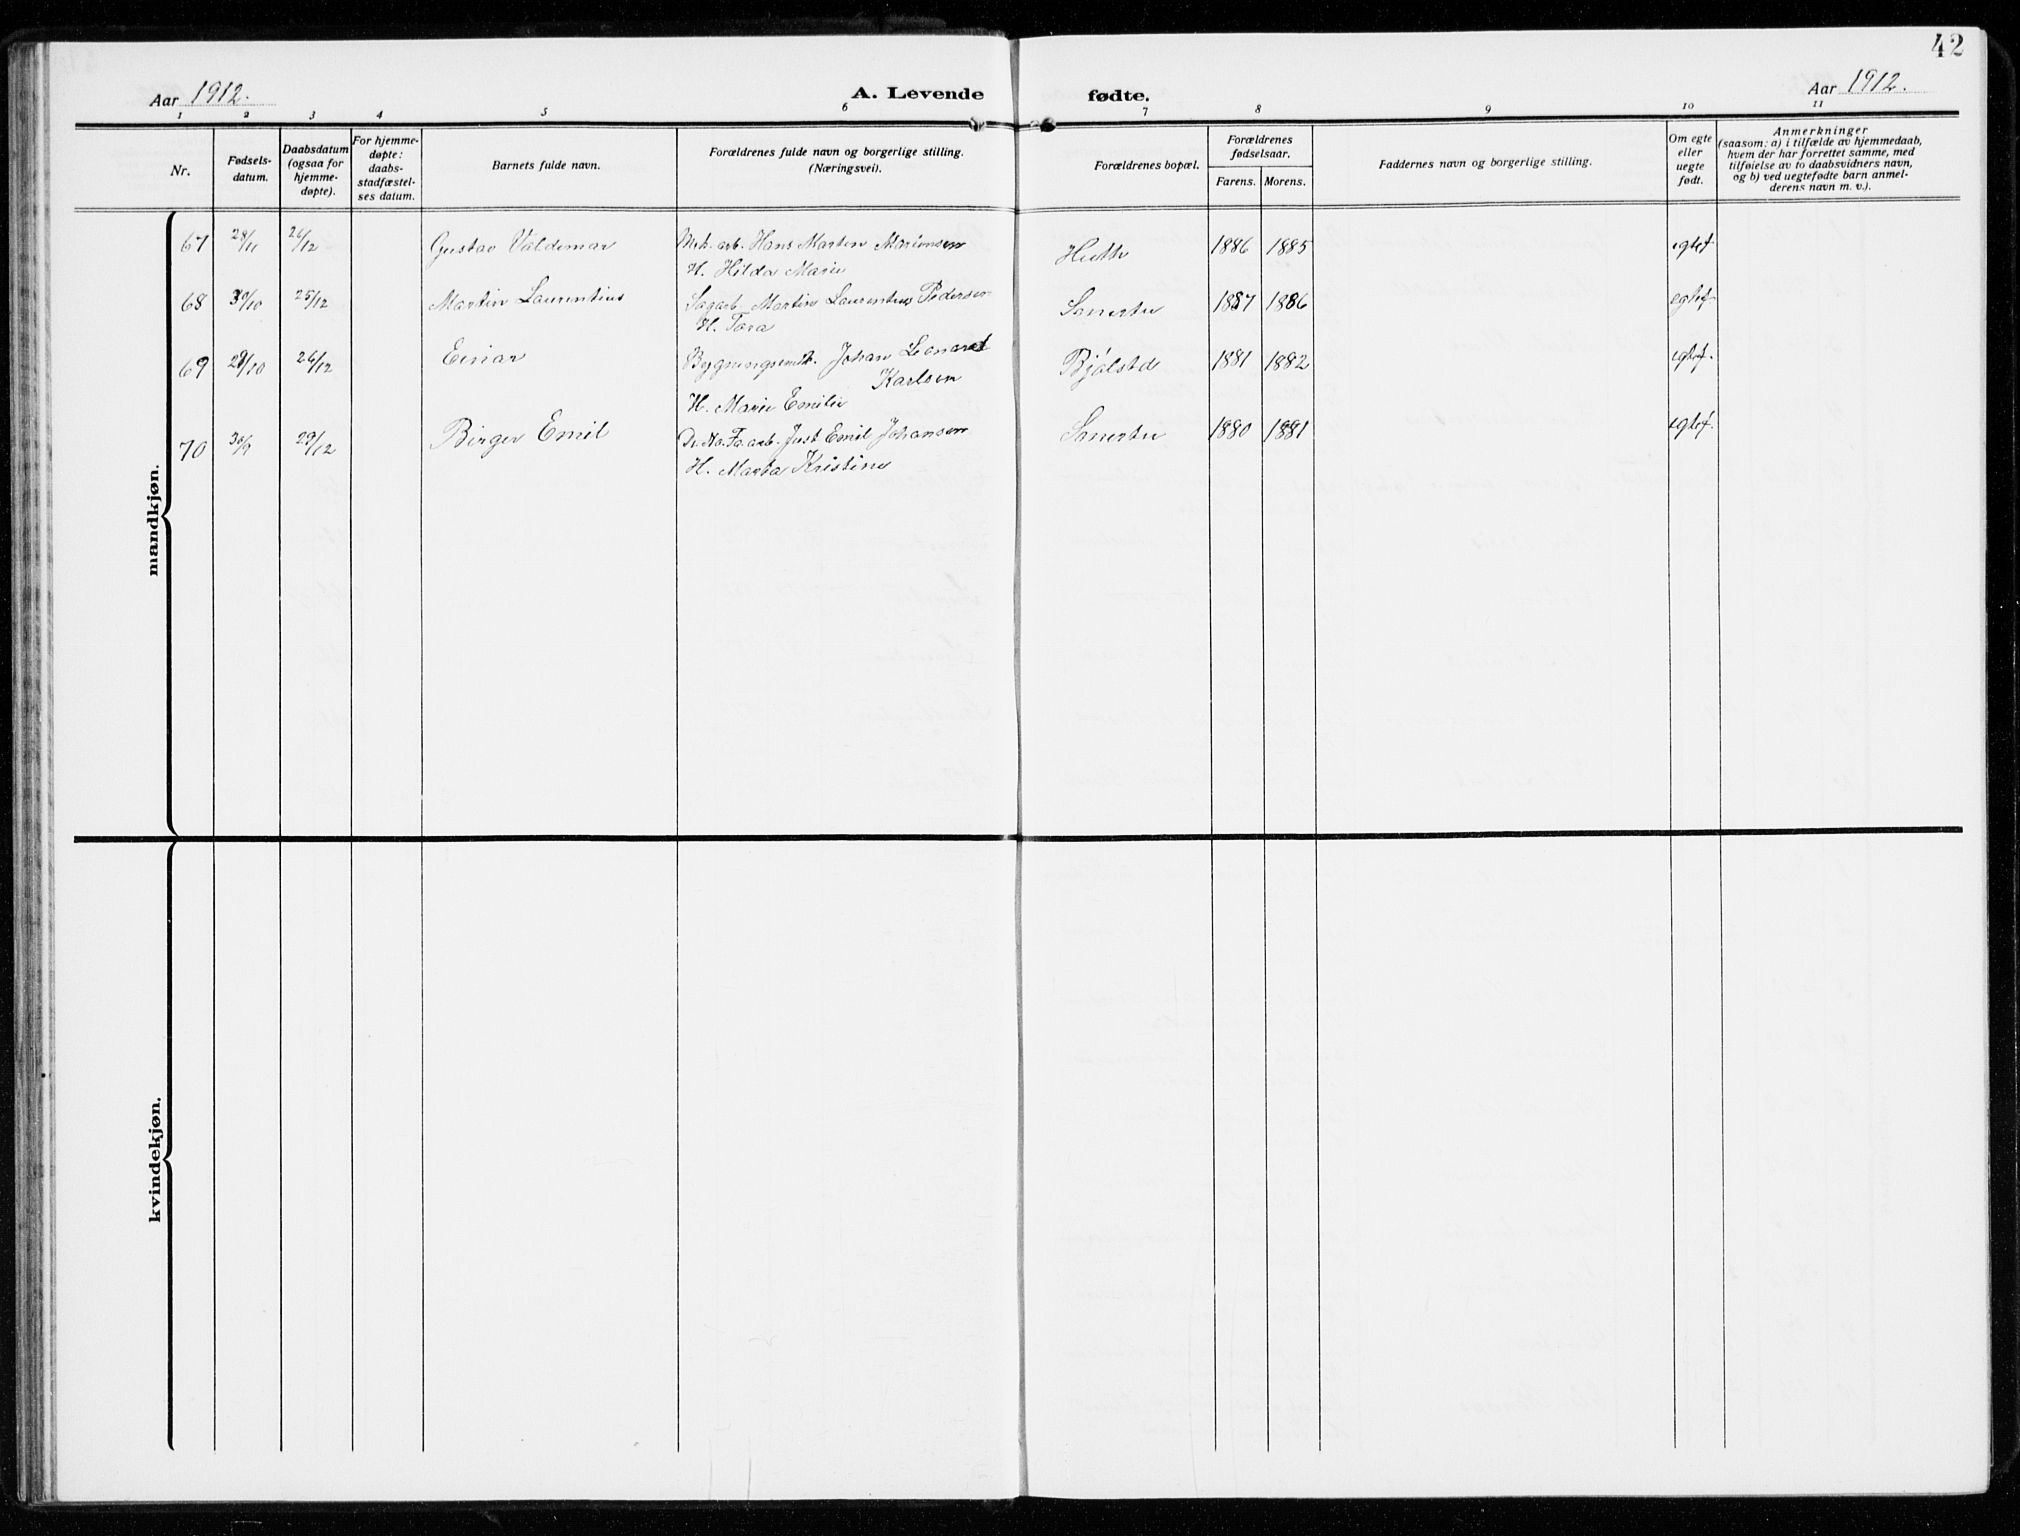 42
Aar 1912. A. Levende fødte. Aar 1912.
1 2 3 4 5 6 7 8 9 10 11
Nr.
Fødsels-
datum.
Daabsdatum
(ogsaa for
hjemme-
døpte).
For hjemme-
døpte:
daabs-
stadfæstel-
ses datum.
Barnets fulde navn.
Forældrenes fulde navn og borgerlige stilling.
(Næringsvei).
Forældrenes bopæl.
Forældrenes
fødselsaar.
Farens. Morens.
Faddernes navn og borgerlige stilling.
Om egte
eller
uegte
født.
Anmerkninger
(saasom: a) i tilfælde av hjemmedaab,
hvem der har forrettet samme, med
tilføielse av to daabsvidners navn,
og b) ved uegtefødte barn anmel-
derens navn m. v.).
mandkjøn.
67 28/11 26/12 Gustav Valdemar Mek. arb. Hans Martin Mariensen 1886 1885 egtef
H. Hilda Marie
68 30/10 25/12 Martin Laurentius Sagarb. Martin Laurentius Pedersen 1887 1886 egtef
H. Tora
69 29/10 26/12 Einar Johan Leonard Bjølstad 1881 1882 egtef.
Karlsen
H. Marie Emilie
70 30/9 29/12 Birger Emil Just Emil Johansen 1880 1881 egtef.
H. Marta Kristine
kvindekjøn.